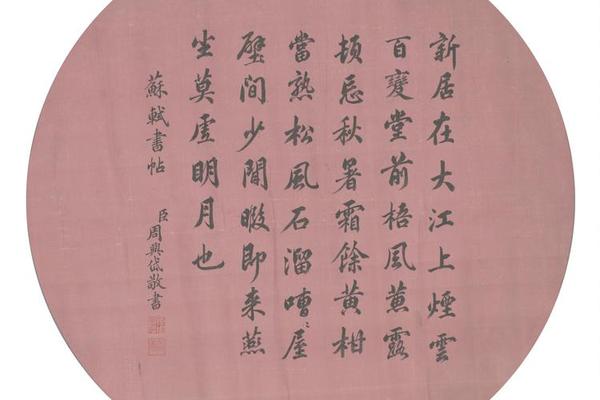 新居在大江上煙雲
百變堂前梧風蕙露
頓忘秋暑霜餘黃柑
當熟松風石溜嘈〻屋
壁間少閒暇即来燕
坐莫虛明月也
蘇軾書帖
臣周興岱敬書